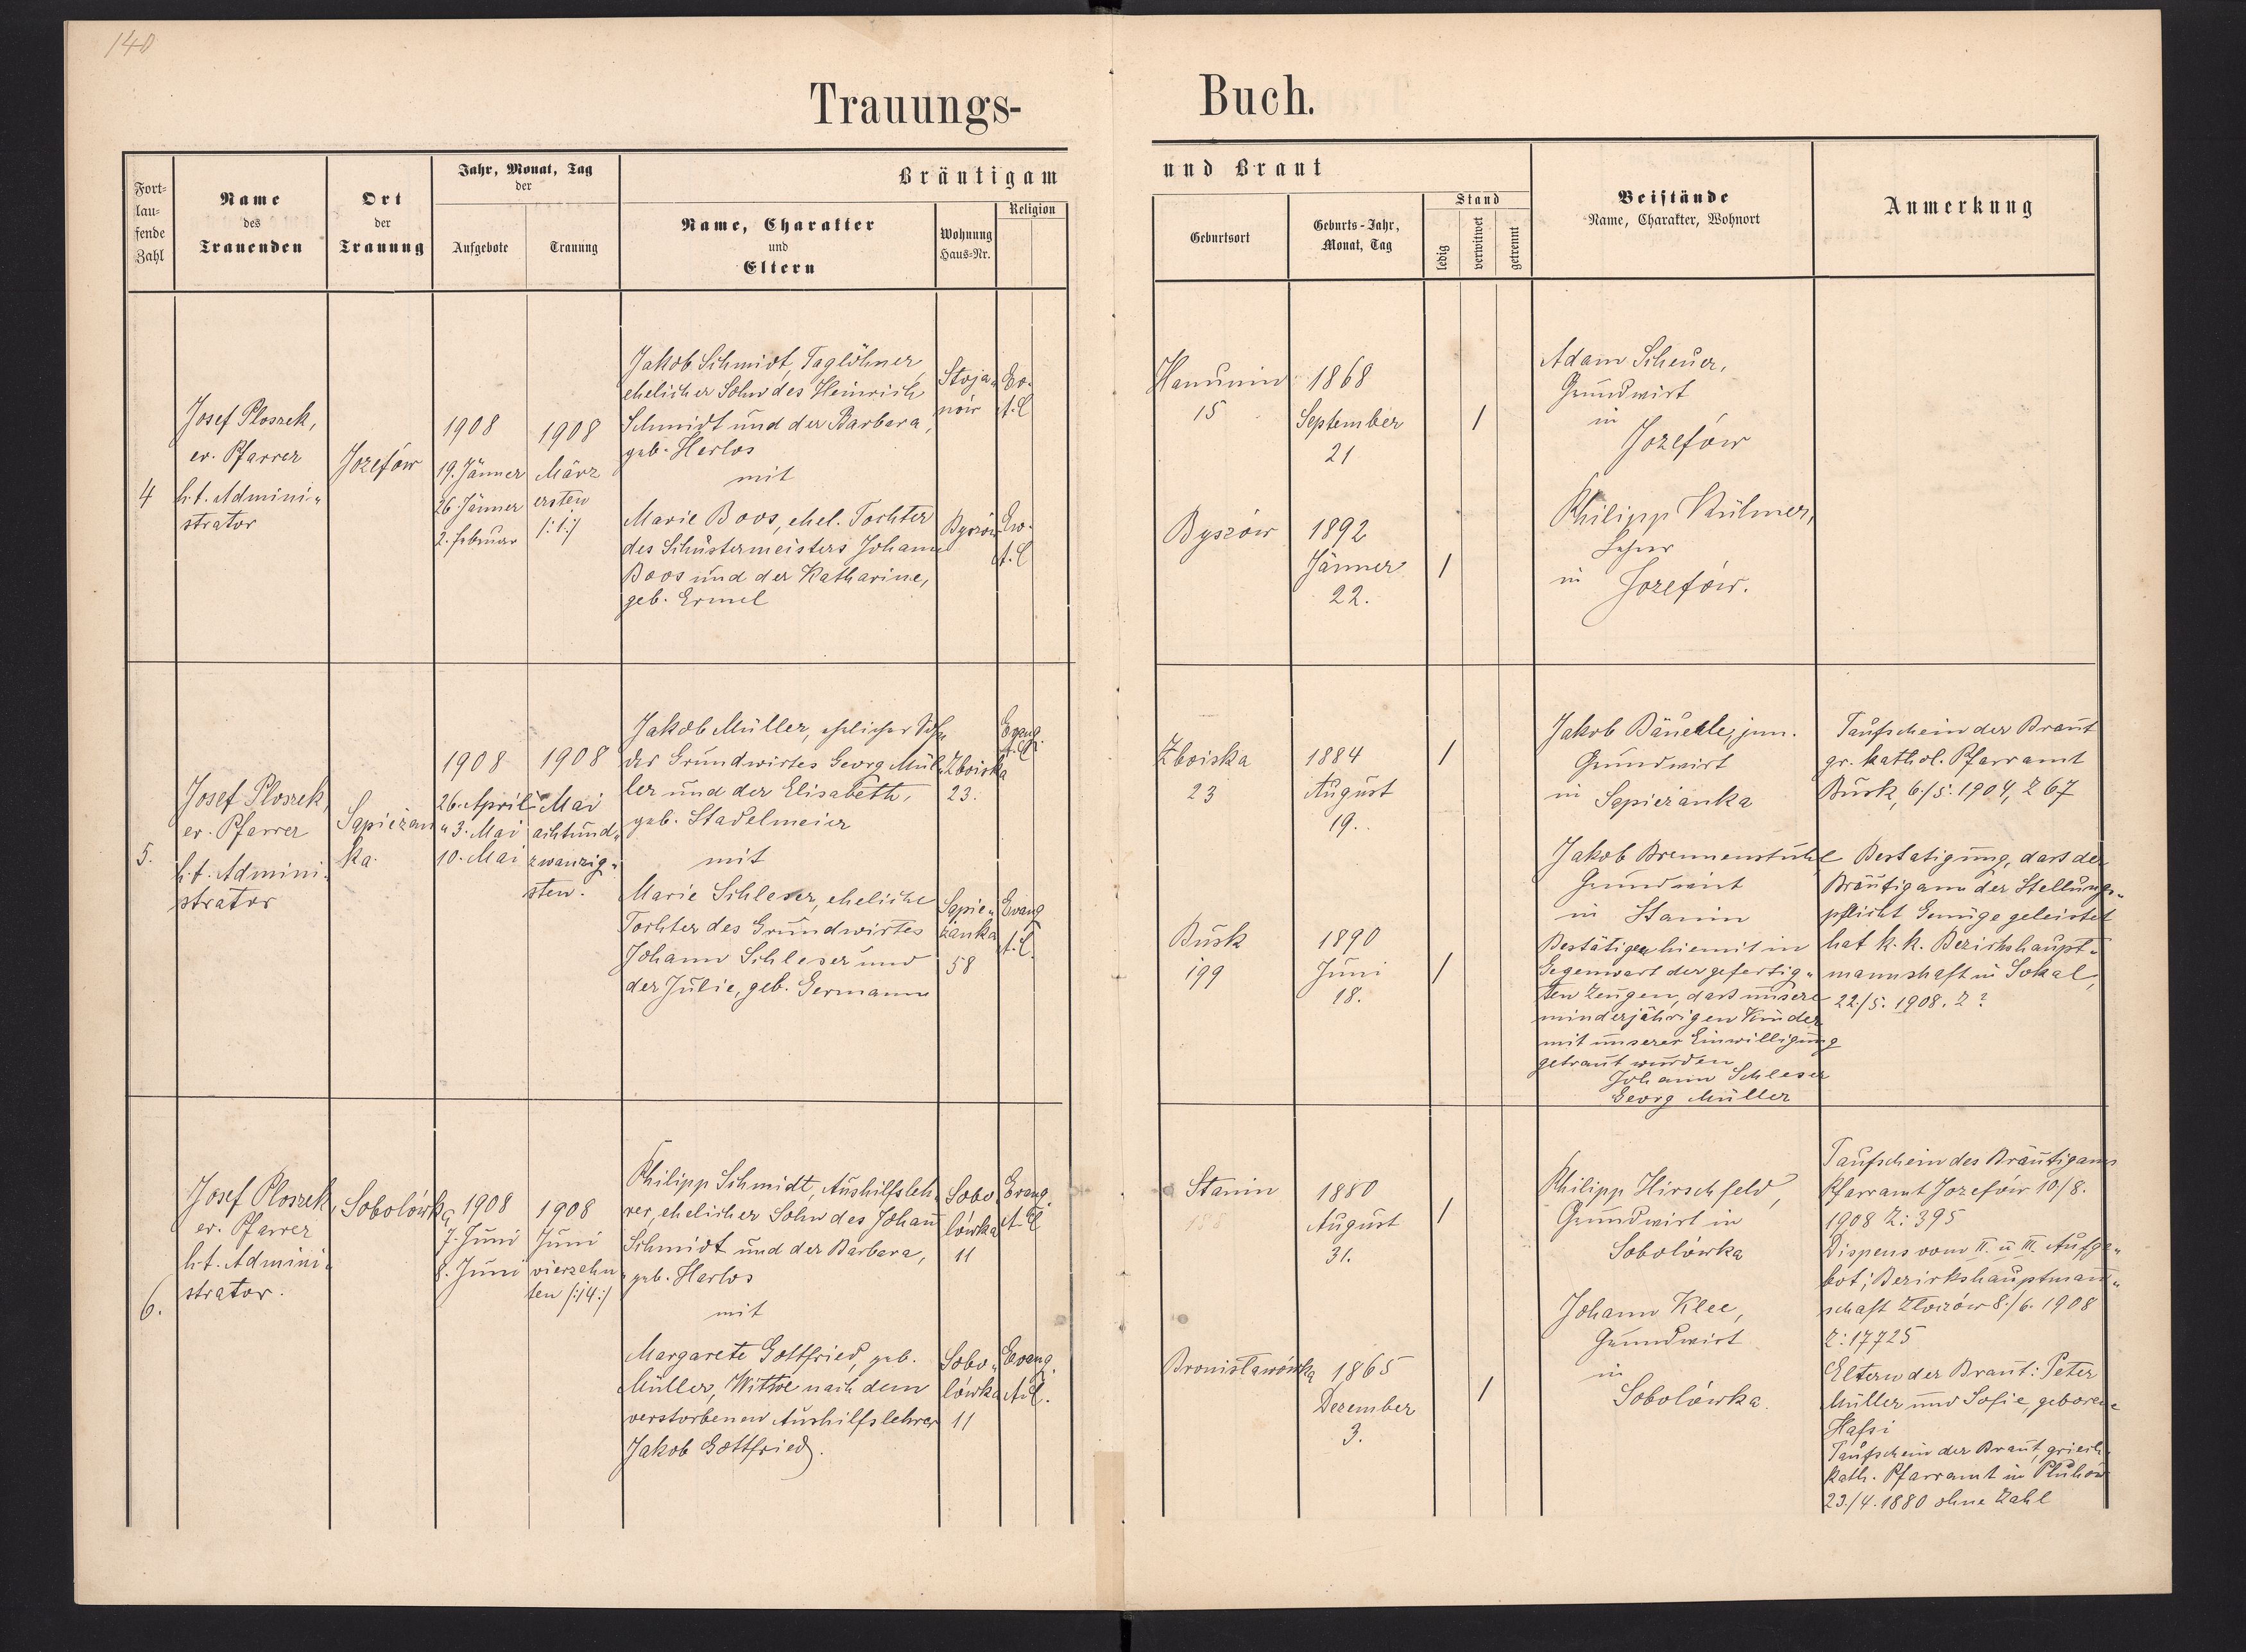 140
Trauungs-
Buch.
Fort-
lau-
fende
Zahl
Name
des
Trauenden
Ort
der
Trauung
Jahr, Monat, Tag
der
Aufgebote
Trauung
Bräutigam
Name, Charakter
und
Eltern
Wohnung
Haus-Nr.
Religion
und Braut
Geburtsort
Geburts-Jahr,
Monat, Tag
Stand
ledig
verwitwet
getrennt
Beistände
Name, Charakter, Wohnort
Anmerkung
4
Josef Ploszek,
ev. Pfarrer
h.t. Admini-
strator
Jozefów
1908
19. Jänner
26. Jänner
2. Februar
1908
März
ersten
/:1:/
Jakob Schmidt, Taglöhner
ehelicher Sohn des Heinrich
Schmidt und der Barbara,
geb. Herlos
mit
Marie Boos, ehel. Tochter
des Schustermeisters Johann
Boos und der Katharine,
geb. Ermel
Stoja-
nów
Ev.
A.C
Byszów
Ev.
A.C
Hanunin
15
1868
September
21
/
Byszów
1892
Jänner
22.
/
Adam Scheuer,
Grundwirt
in
Jozefów
Philipp Külmer,
Lehrer
in Jozefów.
5.
Josef Ploszek,
ev. Pfarrer
h.t. Admini-
strator
Sapieżan-
ka.
1908
26. April
3. Mai
10. Mai
1908
Mai
achtund-
zwanzig-
sten.
Jakob Müller, ehelicher Sohn
des Grundwirtes Georg Mül-
ler und der Elisabeth,
geb. Stadelmeier
mit
Marie Schleser, eheliche
Tochter des Grundwirtes
Johann Schleser und
der Julie, geb. Germann
Zboiska
23.
Evang.
A.C.
Sapie-
żanka
58
Evang
A.C.
Zboiska
23
1884
August
19.
/
Busk
199
1890
Juni
18.
/
Jakob Bäuerle, jun.
Grundwirt
in Sapieżanka
Jakob Brennenstuhl
Grundwirt
in Stanin
Bestätigen hiemit in
Gegenwart der gefertig-
ten Zeugen, dass unsere
minderjährigen Kinder
mit unserer Einwilligung
getraut wurden
Johann Schleser
Georg Müller
Taufschein der Braut
gr. kathol. Pfarramt
Busk, 6./5. 1904, Z 67
Bestatigung, dass der
Bräutigam der Stellungs-
pflicht Genüge geleistet
hat k.k. Bezirkshaupt-
mannshaft in Sokal,
22./5. 1908. Z ?
6.
Josef Ploszek,
ev. Pfarrer
h.t. Admini-
strator.
Sobolówka
1908
7. Juni
8. Juni
1908
Juni
vierzehn-
ten /:14:/
Philipp Schmidt, Aushilfsleh-
rer, ehelicher Sohn des Johann
Schmidt und der Barbara,
geb. Harlos
mit
Margarete Gottfried, geb.
Müller, Witwe nach dem
verstorbenen Aushilfslehrer
Jakob Gottfried.
Sobo-
lówka
11
Evang.
A.C
Sobo-
lówka
11
Evang.
A.C.
Stanin
1880
August
31.
/
Bronisławówka
1865
Dezember
3.
/
Philipp Hirschfeld,
Grundwirt in
Sobolówka
Johann Klee,
Grundwirt
in
Sobolówka.
Taufschein des Bräutigams
Pfarramt Jozefów 10/8.
1908 Z: 395
Dispens vom II. u III. Aufge-
bot; Bezirkshauptmann-
schaft Złoczów 8./6. 1908
Z: 17725
Eltern der Braut: Peter
Müller und Sofie, geborene
Hafsi
Taufschein der Braut, griech.
kath. Pfarramt in Pluhów
23./4. 1880 ohne Zahl